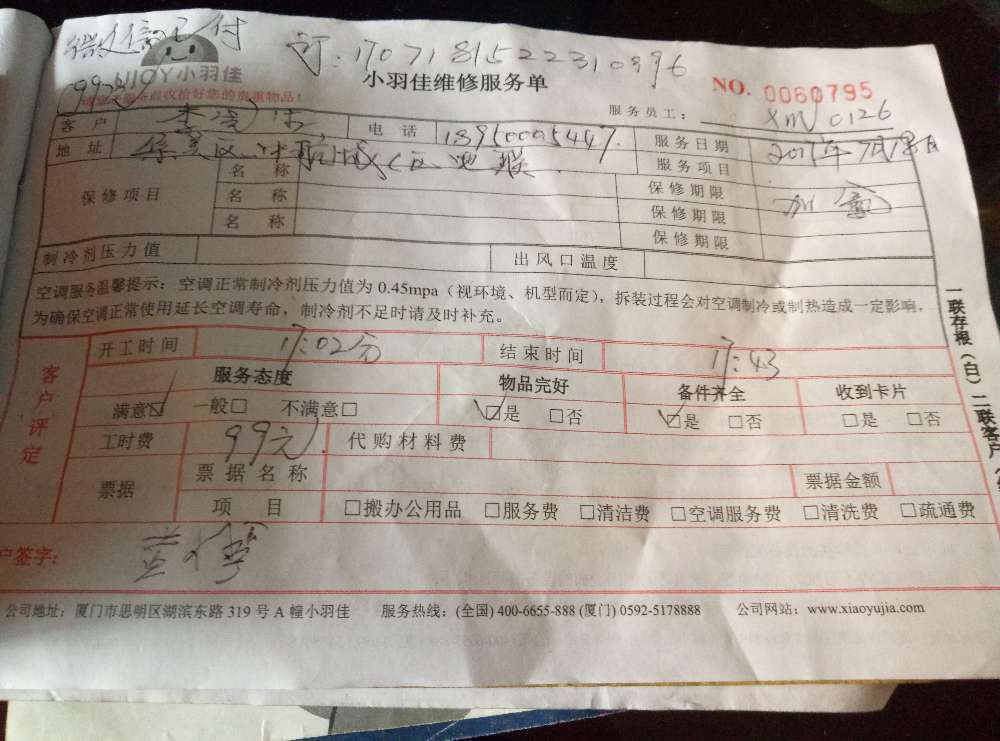 微信已付
订:17071815222310996
99元 JJOY小羽佳
小羽佳维修服务单
NO. 0060795
服务员工: xm0126
客户 电话 13950005447. 服务日期 2017年7月18日
地址 服务项目 加氟
保修项目 名称 保修期限
名称 保修期限
名称 保修期限
制冷剂压力值 出风口温度
空调服务温馨提示:空调正常制冷剂压力值为 0.45mpa(视环境、机型而定),拆装过程会对空调制冷或制热造成一定影响,
为确保空调正常使用延长空调寿命,制冷剂不足时请及时补充。
客户评定
开工时间 17:02 结束时间 17:43
服务态度 物品完好 备件齐全 收到卡片
满意☑ 一般□ 不满意□ ☑是 □否 ☑是 □否 □是 □否
工时费 99元 代购材料费
票据 票据名称 票据金额
项目 □搬办公用品 □服务费 □清洁费 □空调服务费 □清洗费 □疏通费
户签字:
公司地址:厦门市思明区湖滨东路 319 号 A 幢小羽佳 服务热线:(全国) 400-6655-888 (厦门) 0592-5178888 公司网站:www.xiaoyujia.com
一联存根(白)二联客户